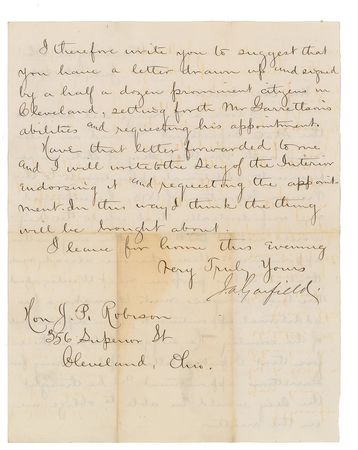 I therefore write you to suggest that
you have a letter drawn up and signed
by a half a dozen prominent citizens in
Cleveland, setting forth Mr Garrettson's
abilities and requesting his appointment.
Have that letter forwarded to me
and I will write to the Secy of the Interior
Endorsing it and requesting the appoint-
ment. In this way I think the thing
will be brought about.
I leave for home this evening
Very Truly Yours
J.A. Garfield.
Hon J. P. Robison
356 Superior St
Cleveland, Ohio.